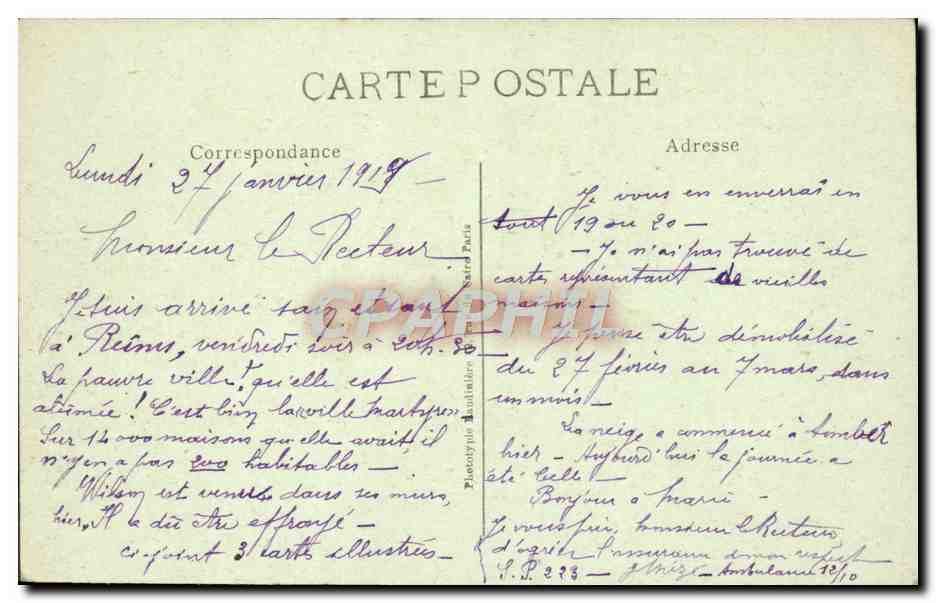 CARTE POSTALE
Correspondance
Lundi 27 janvier 1919 —
Monsieur le Recteur
Je suis arrivé sain et sauf
à Reims, vendredi soir à 20h.30 —
La pauvre ville! qu'elle est
abîmée! C'est bien la ville martyre —
Sur 14 000 maisons qu'elle avait, il
n'y en a pas 200 habitables —
Wilson est venu dans ses murs,
hier, Il a dû être effrayé —
Ci-joint 3 cartes illustrées —
Phototypie Baudinière Paris
Adresse
Je vous en enverrai en
tout 19 ou 20 —
— Je n'ai pas trouvé de
cartes représentant de vieilles
maisons —
Je pense être démobilisé
du 27 février au 7 mars, dans
un mois —
La neige a commencé à tomber
hier — Aujourd'hui la journée a
été belle —
Bonjour à Marie —
Je vous prie, Monsieur le Recteur,
d'agréer l'assurance de mon respect
S.P. 223 — Ambulance 12/10
CPAPHIL